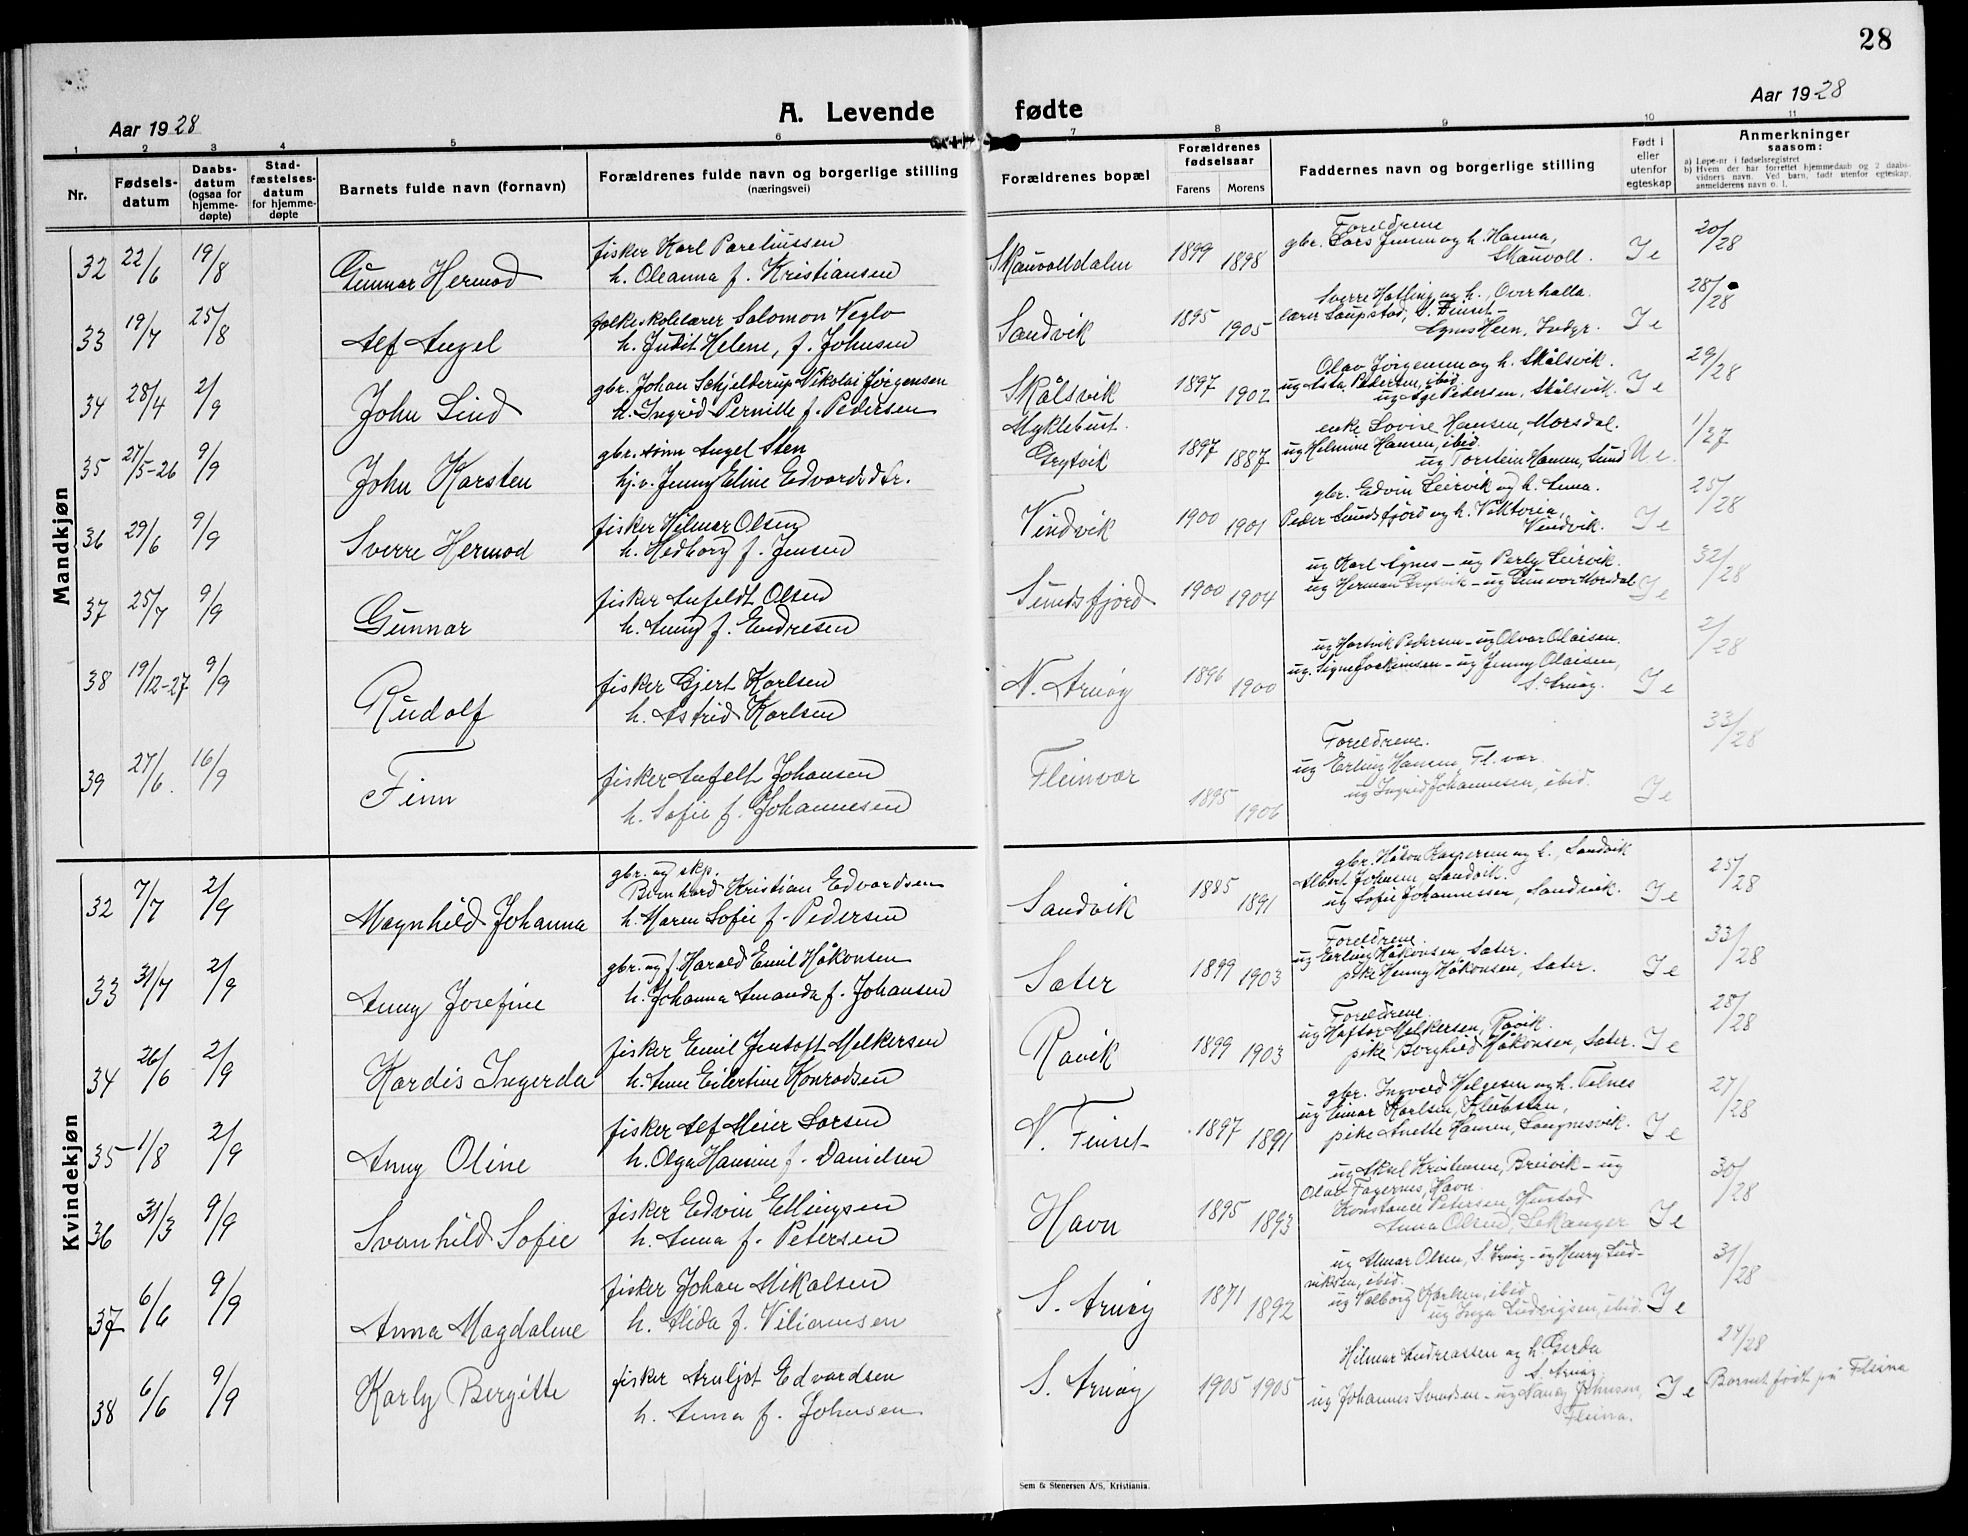 28
Aar 1928
A. Levende fødte
Aar 1928
1 2 3 4 5 6 7 8 9 10 11
Nr.
Fødsels-
datum
Daabs-
datum
(ogsaa for
hjemme-
døpte)
Stad-
fæstelses-
datum
for hjemme-
døpte
Barnets fulde navn (fornavn)
Forældrenes fulde navn og borgerlige stilling
(næringsvei)
Forældrenes bopæl
Forældrenes
fødselsaar
Farens Morens
Faddernes navn og borgerlige stilling
Født i
eller
utenfor
egteskap
Anmerkninger
saasom:
a) Løpe-nr. i fødselsregistret
b) Hvem der har forrettet hjemmedaab og 2 daabs-
vidners navn. Ved barn, født utenfor egteskap,
anmelderens navn o. l.
Mandkjøn
32 22/6 19/8 Gunnar Hermod
fisker Karl Pareliussen
h. Oleanna f. Kristiansen
Skauvolldalen 1899 1898
Foreldrene
gbr. Lars Jensen og h. Hanna,
Skauvoll.
I e 20/28
33 19/7 25/8 Alf Angel
folkeskolelærer Salomon Veglo
h. Judit Helene, f. Johnsen
Sandvik 1895 1905
Sverre Hotling og h., Overhalla
lærer Saupstad, S. Finset
Agnes Heen, Inder.
I e 28/28
34 28/4 2/9 John Lind
gbr. Johan Schjelderup Nikolai Jørgensen
h. Ingrid Pernille f. Pedersen
Skålsvik 1897 1902
Olav Jørgensen og h. Skålsvik.
ug Asta Pedersen, ibid.
ug Åge Pedersen, Skålsvik.
I e 29/28
35 27/5-26 9/9 John Karsten
gbr. sønn Angel Sten
hj. v. Jenny Eline Edvardsdtr.
Myklebust.
Grytvik 1897 1887
enke Lovise Hansen, Morsdal.
ug Helmine Hansen, ibid.
ug Torstein Hansen, Sund
U e. 1/27
36 29/6 9/9 Sverre Hermod
fisker Hilmar Olsen
h. Hedborg f. Jensen
Vindvik 1900 1901
gbr. Edvin Leirvik og h. Anna.
Peder Sundsfjord og h. Viktoria,
Vindvik.
I e 25/28
37 25/7 9/9 Gunnar
fisker Anfeldt Olsen
h. Anny f. Endresen
Sundsfjord 1900 1904
ug Karl Agnes - ug Perly Leirvik.
ug Herman Grytvik - ug Gunvor Morsdal
I e 32/28
38 19/12-27 9/9 Rudolf
fisker Gjert Karlsen
h. Astrid Karlsen
N. Arnøy 1896 1900
ug Hartvik Pedersen - ug Olvar Olaisen.
ug. Signe Joakimsen - ug Jenny Olaisen,
S. Arnøy.
I e 2/28
39 27/6 16/9 Finn
fisker Anfelt Johansen
h. Sofie f. Johannesen
Fleinvær 1895 1906
Foreldrene.
ug Erling Hansen, Fl. vær.
ug Ingrid Johannesen, ibid.
I e 33/28
Kvindekjøn
32 7/7 2/9 Magnhild Johanna
gbr. og skp.
Bernhard Kristian Edvardsen
h. Maren Sofie f. Pedersen
Sandvik 1885 1891
gbr. Håkon Kaspersen og h., Sandvik
Albert Johnsen, Sandvik.
ug Sofie Johannessen, Sandvik.
I e 25/28
33 31/7 2/9 Anny Josefine
gbr. og f. Harald Emil Håkonsen
h. Johanna Amanda f. Johansen
Sæter 1899 1903
Foreldrene.
ug Erling Håkonsen, Sæter.
pike Henny Håkonsen, Sæter.
I e 33/28
34 26/6 2/9 Kardis Ingerda
fisker Emil Jentoft Melkersen
h. Anne Eilertine Konradsen
Ravik 1899 1903
Foreldrene.
ug Haftor Melkersen, Ravik.
pike Borghild Håkonsen, Sæter.
I e 28/28
35 1/8 2/9 Anny Oline
fisker Alf Meier Larsen
h. Olga Hansine f. Danielsen
N. Finset 1897 1891
gbr. Ingvald Helgesen og h. Telnes
ug Einar Karlsen, Klubstan,
pike Anette Hansen, Langnesvik.
I e 27/28
36 31/3 9/9 Svanhild Sofie
fisker Edvin Ellingsen
h. Anna f. Petersen
Havn 1895 1893
ug Aksel Kristensen, Breivik - ug
Olav Fagernes, Havn.
Konstance Petersen, Hustad
Anna Olsen, Lekanger
I e 30/28
37 6/6 9/9 Anna Magdaline
fisker Johan Mikalsen
h. Alida f. Viliamsen
S. Arnøy 1871 1892
ug Almar Olsen, S. Arnøy - ug Henry Lud-
viksen, ibid.
ug Valborg Karlsen, ibid
ug Inga Ludvigsen, ibid.
I e 31/28
38 6/6 9/9 Karly Bergitte
fisker Arnljot Edvardsen
h. Anna f. Johnsen
S. Arnøy 1905 1905
Hilmar Andreassen og h. Gerda
S. Arnøy
ug Johannes Svendsen - ug Nancy Johnsen,
Fleina.
I e 24/28
Barnet født på Fleina
Sem & Stenersen A/S, Kristiania.